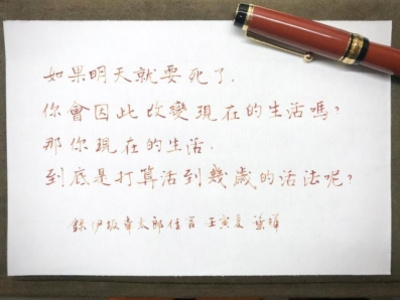 如果明天就要死了.
你會因此改變現在的生活嗎?
那你現在的生活.
到底是打算活到幾歲的活法呢?
錄伊坂幸太郎佳言 壬寅夏